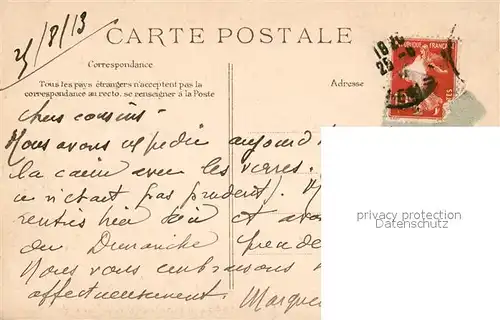 25/8/13
CARTE POSTALE
Correspondance
Tous les pays étrangers n'acceptent pas la
correspondance au recto. se renseigner à la Poste
Adresse
chers cousins
Nous avons expédié aujourd
la caisse avec les verres.
ce n'était pas prudent).
rentrés hier soir et avons
du Dimanche
Nous vous embrassons
affectueusement
privacy protection
Datenschutz